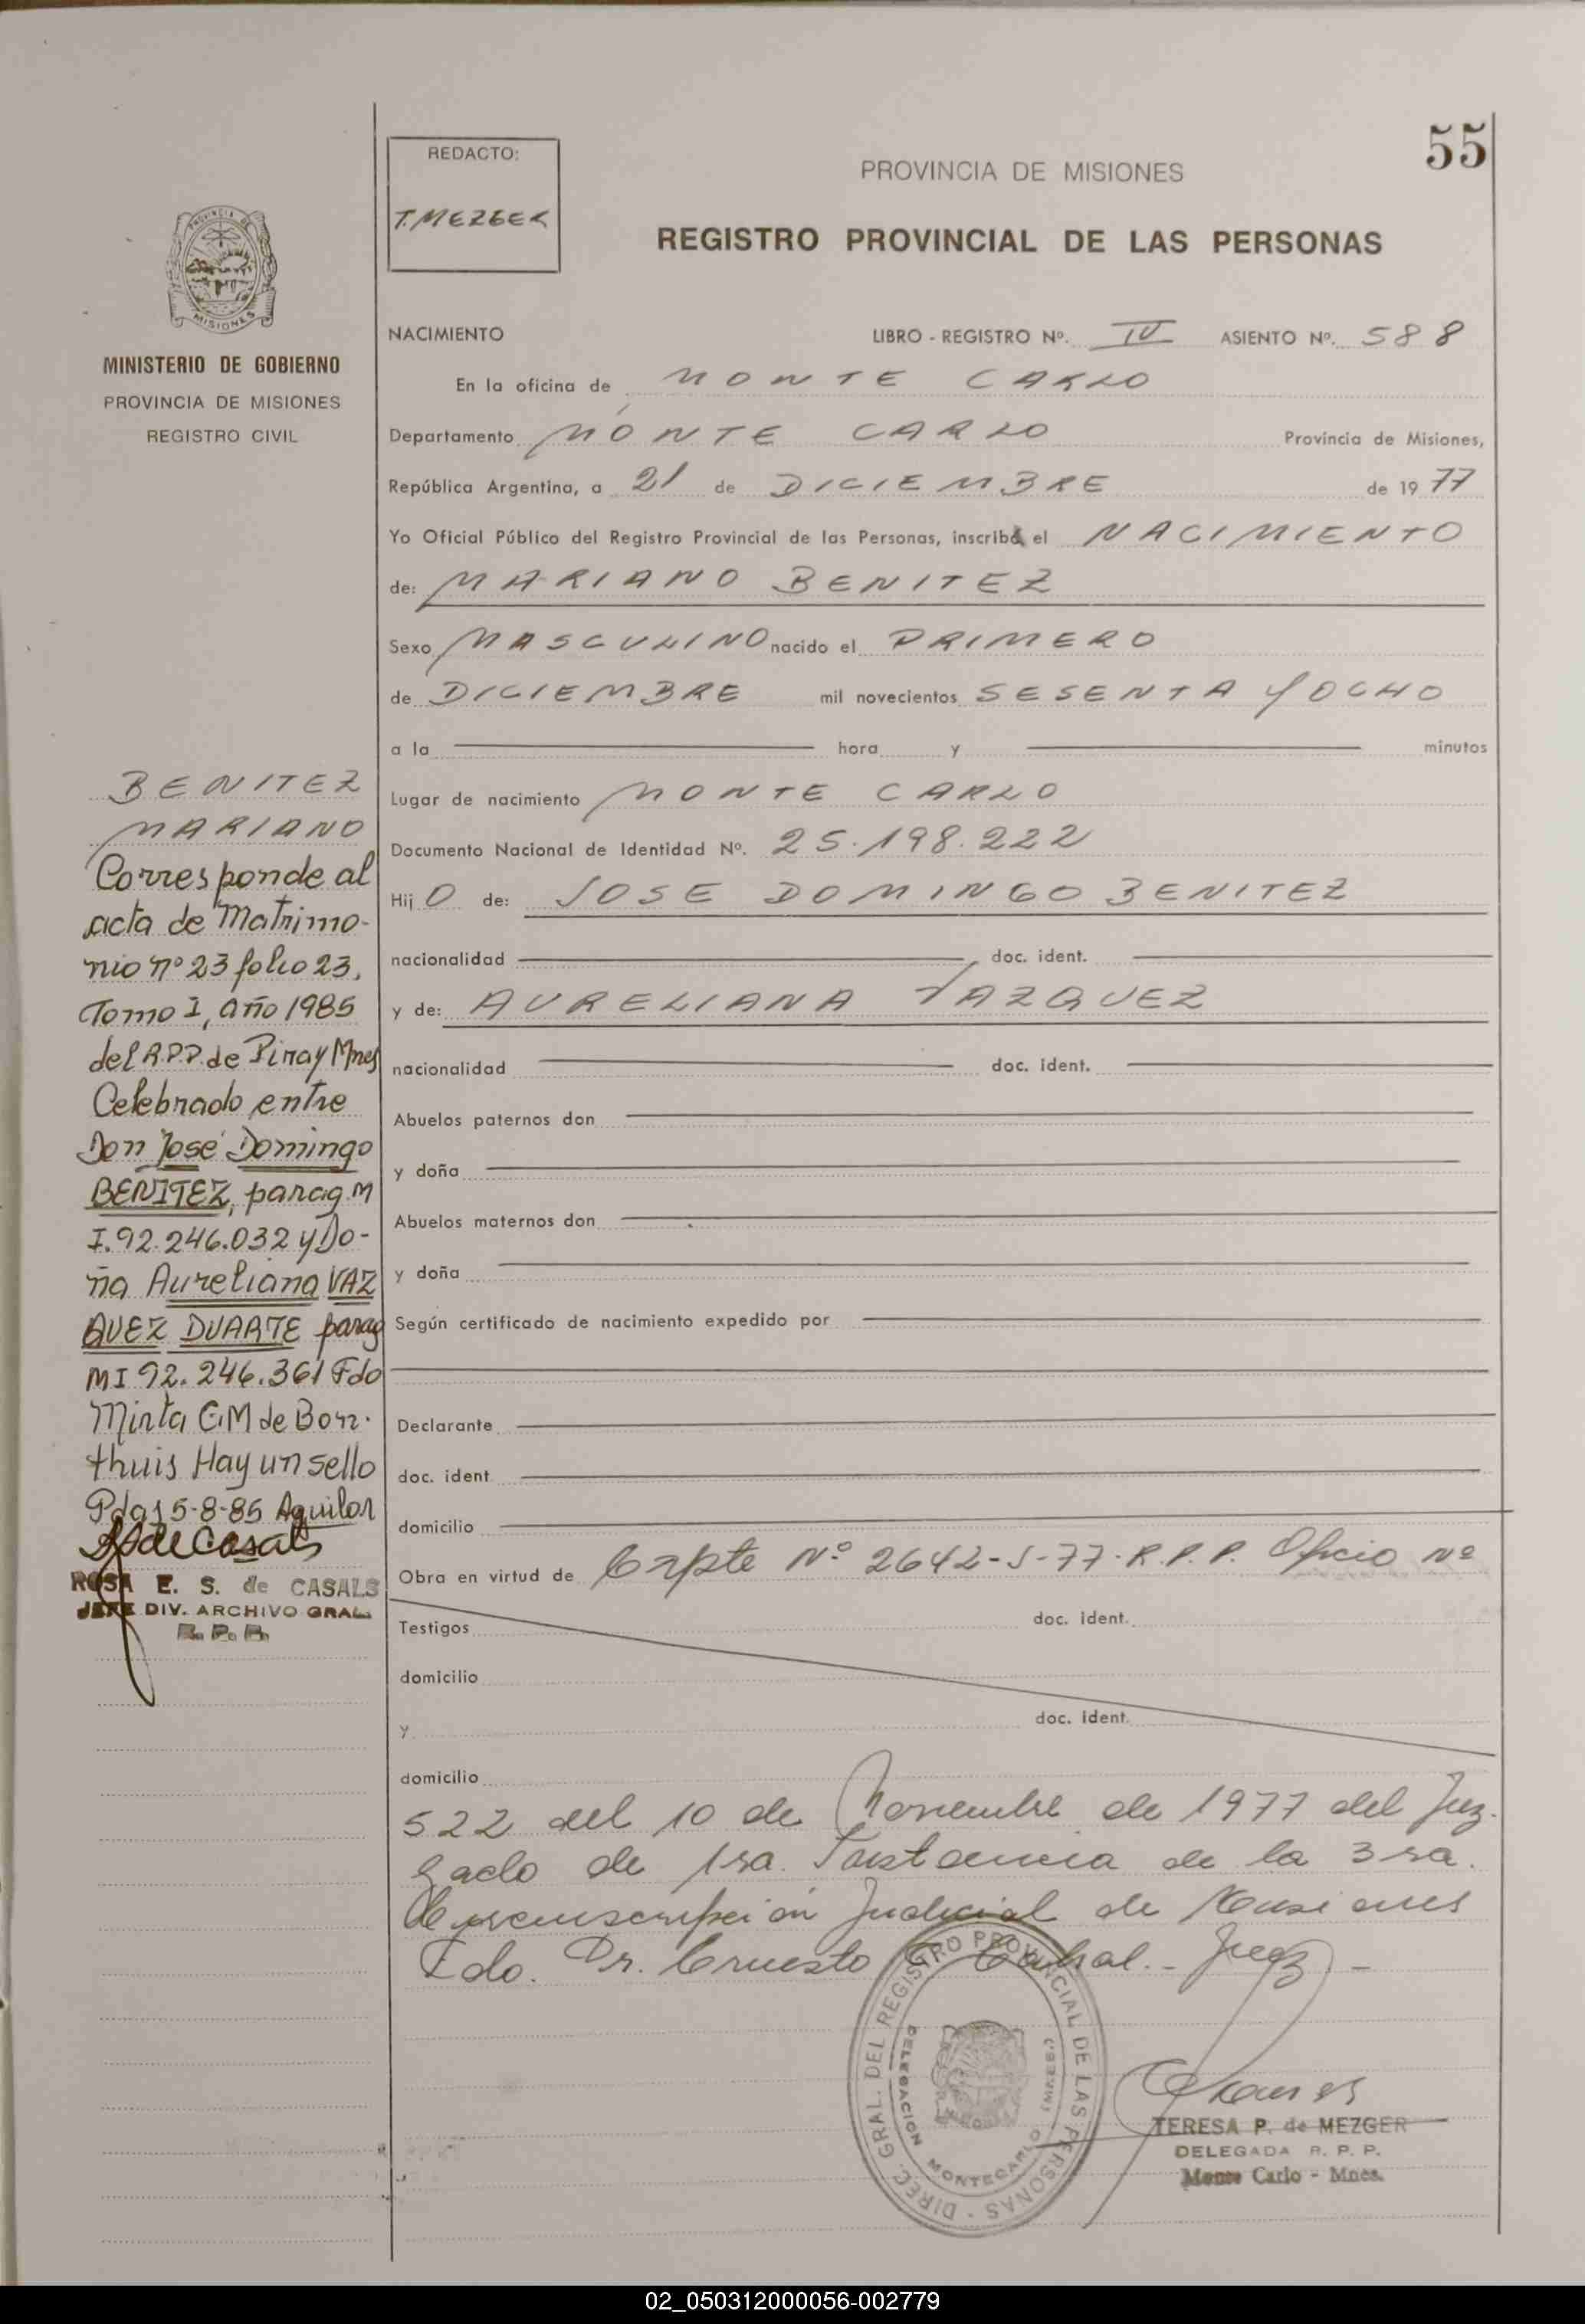 55
REDACTO:
T. MEZGER
PROVINCIA DE MISIONES
REGISTRO PROVINCIAL DE LAS PERSONAS
PROVINCIA DE
MISIONES
MINISTERIO DE GOBIERNO
PROVINCIA DE MISIONES
REGISTRO CIVIL
NACIMIENTO LIBRO - REGISTRO Nº. IV ASIENTO Nº. 588
En la oficina de MONTE CARLO
Departamento MONTE CARLO Provincia de Misiones,
República Argentina, a 21 de DICIEMBRE de 1977
Yo Oficial Público del Registro Provincial de las Personas, inscribo el NACIMIENTO
de: MARIANO BENITEZ
Sexo MASCULINO nacido el PRIMERO
de DICIEMBRE mil novecientos SESENTA Y OCHO
a la hora y minutos
Lugar de nacimiento MONTE CARLO
Documento Nacional de Identidad Nº. 25.198.222
Hij O de: JOSE DOMINGO BENITEZ
nacionalidad doc. ident.
y de: AURELIANA VAZQUEZ
nacionalidad doc. ident.
Abuelos paternos don
y doña
Abuelos maternos don
y doña
Según certificado de nacimiento expedido por
Declarante
doc. ident
domicilio
Obra en virtud de Expte Nº 2642-S-77-R.P.P. Oficio Nº
Testigos doc. ident.
domicilio
y doc. ident.
domicilio
522 del 10 de Noviembre de 1977 del Juz-
gado de 1ra. Instancia de la 3ra.
Circunscripción Judicial de Misiones
Fdo. Dr. Ernesto Cabral.- Juez -
BENITEZ
MARIANO
Corresponde al
acta de Matrimo-
nio nº 23 folio 23,
Tomo I, año 1985
del R.P.P. de Piray Mnes
Celebrado entre
Don José Domingo
BENITEZ, parag. M
I. 92.246.032 y Do-
ña Aureliana VAZ
QUEZ DUARTE parag
MI 92.246.361 Fdo
Mirta G.M de Bon-
thuis Hay un sello
Pdas 5-8-85 Aguilar
RSdeCasals
ROSA E. S. de CASALS
JEFE DIV. ARCHIVO GRAL.
R. P. P.
DIREC. GRAL. DEL REGISTRO PROVINCIAL DE LAS PERSONAS
DELEGACION MONTECARLO
TERESA P. de MEZGER
DELEGADA R. P. P.
Monte Carlo - Mnes.
02_050312000056-002779